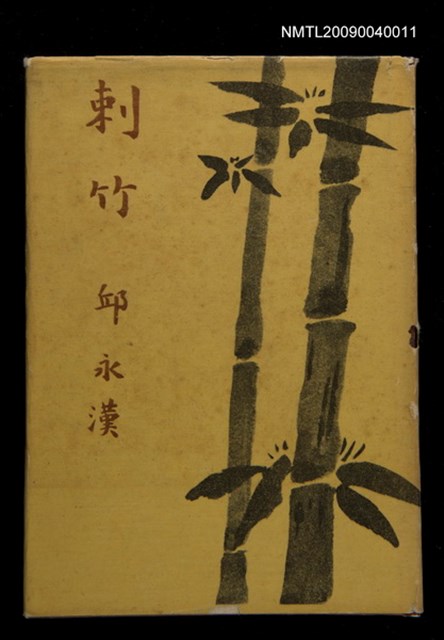 NMTL20090040011
刺竹
邱永漢